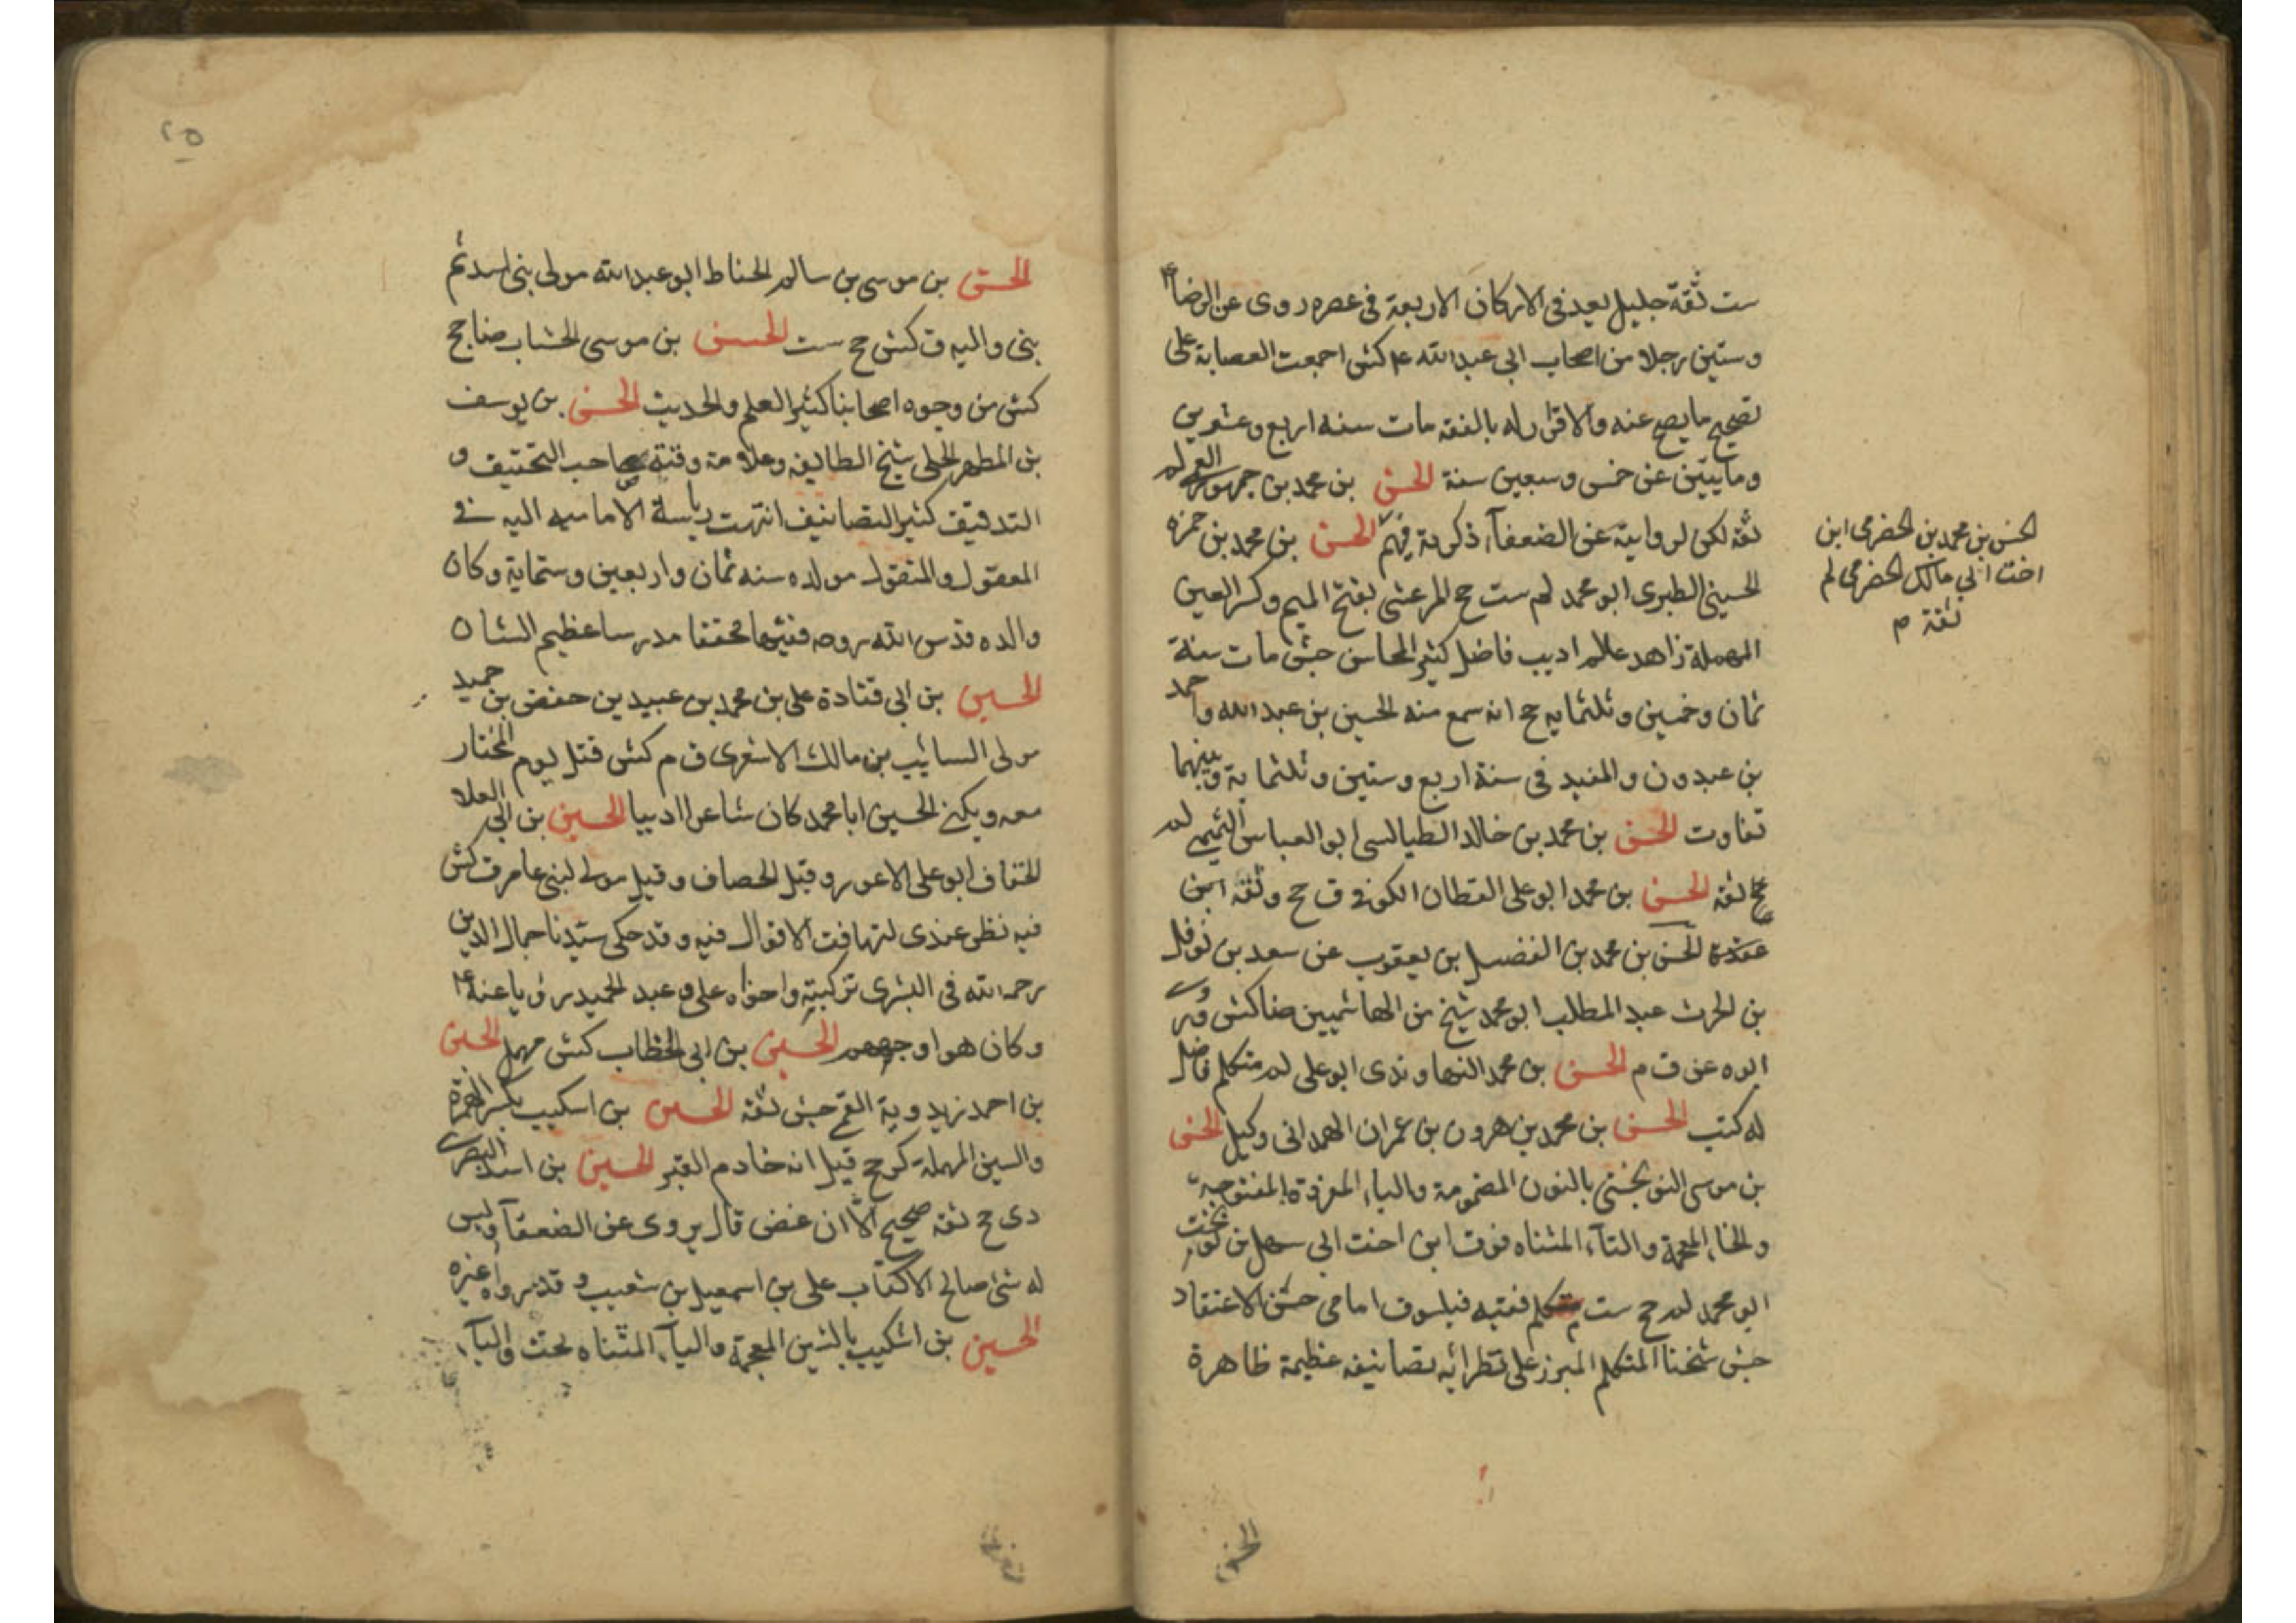 ست ثقة جليل يعد في الاركان الاربعة في عصره روى عن الرضا ع
وستين رجلا من اصحاب ابي عبد الله ع كش اجمعت العصابة على
تصحيح ما يصح عنه والاقرار له بالفقه مات سنه اربع وعشرين
ومايتين عن خمس وسبعين سنة الحسن بن محمد بن جمهور العمي لم
ثقة لكن لروايته عن الضعفآء ذكرته فيهم الحسن بن محمد بن حمزه
الحسيني الطبرى ابو محمد لم ست جخ المرعشي بفتح الميم وكسر العين
المهملة زاهد عالم اديب فاضل كثير المحاسن جش مات سنة
ثمان وخمسين وثلثمايه جخ انه سمع منه الحسين بن عبد الله واحمد
بن عبدون والمفيد في سنة اربع وستين وثلثماية وبينهما
تفاوت الحسن بن محمد بن خالد الطيالسي ابو العباس التميمي لم
جخ ثقه الحسن بن محمد ابو على القطان الكوفي ق جخ وثقه ابن
عقدة الحسن بن محمد بن الفضل بن يعقوب عن سعد بن نوفل
بن الحرث عبد المطلب ابو محمد شيخ من الهاشميين ضا كش وروى
ابوه عن ق م الحسن بن محمد النهاوندى ابو على لم متكلم فاضل
له كتب الحسن بن محمد بن هرون بن عمران الهمدانى وكيل الحسن
بن موسى النوبختي بالنون المضمومة والباء المفردة المفتوحة
والخاء المعجمة والتآء المثناه فوق ابن اخت ابي سهل بن نوبخت
ابو محمد لم جخ ست متكلم فقيه فيلسوف امامي حسن الاعتقاد
جش شيخنا المتكلم المبرز على نظرائه تصانيفه عظيمة ظاهرة
الحسن بن محمد بن الحضرمى ابن
اخت ابي مالك الحضرمى لم
ثقة م
الحسن
٢٥
الحسن بن موسى بن سالم الحناط ابو عبد الله مولى بني اسد ثم
بني والبه ق كش جخ ست الحسن بن موسى الخشاب ضا جخ
كش من وجوه اصحابنا كثير العلم والحديث الحسن بن يوسف
بن المطهر الحلى شيخ الطايفه وعلامة وقته صاحب التحقيق و
التدقيق كثير التصانيف انتهت رياسة الاماميه اليه في
المعقول والمنقول مولده سنه ثمان واربعين وستماية وكان
والده قدس الله روحه فقيها محققا مدرسا عظيم الشان
الحسين بن ابي قتادة على بن محمد بن عبيد بن حفص بن حميد
مولى السائيب بن مالك الاشعرى ق م كش قتل يوم المختار
معه ويكنى الحسين ابا محمد كان شاعرا اديبا الحسين بن ابي العلا
الخفاف ابو على الاعور وقيل الخصاف وقيل مولى لبني عامر ق كش
فيه نظر عندى لتهافت الاقوال فيه وقد حكى سيدنا جمال الدين
رحمه الله في البشرى تزكيته واخواه على وعبد الحميد رويا عنه ع
وكان هو اوجههم الحسين بن ابي الخطاب كش مهمل الحسين
بن احمد زيدوية القمي جش ثقة الحسين بن اسكيب بكسر الهمزة
والسين المهملة كر جخ قيل انه خادم القبر الحسين بن اسد البصرى
دى جخ ثقه صحيح الا ان غض قال يروى عن الضعفآ وليس
له شئ صالح الا كتاب على بن اسمعيل بن شعيب وقد رواه غيره
الحسين بن اشكيب بالشين المعجمة واليآء المثناه تحت والبآء